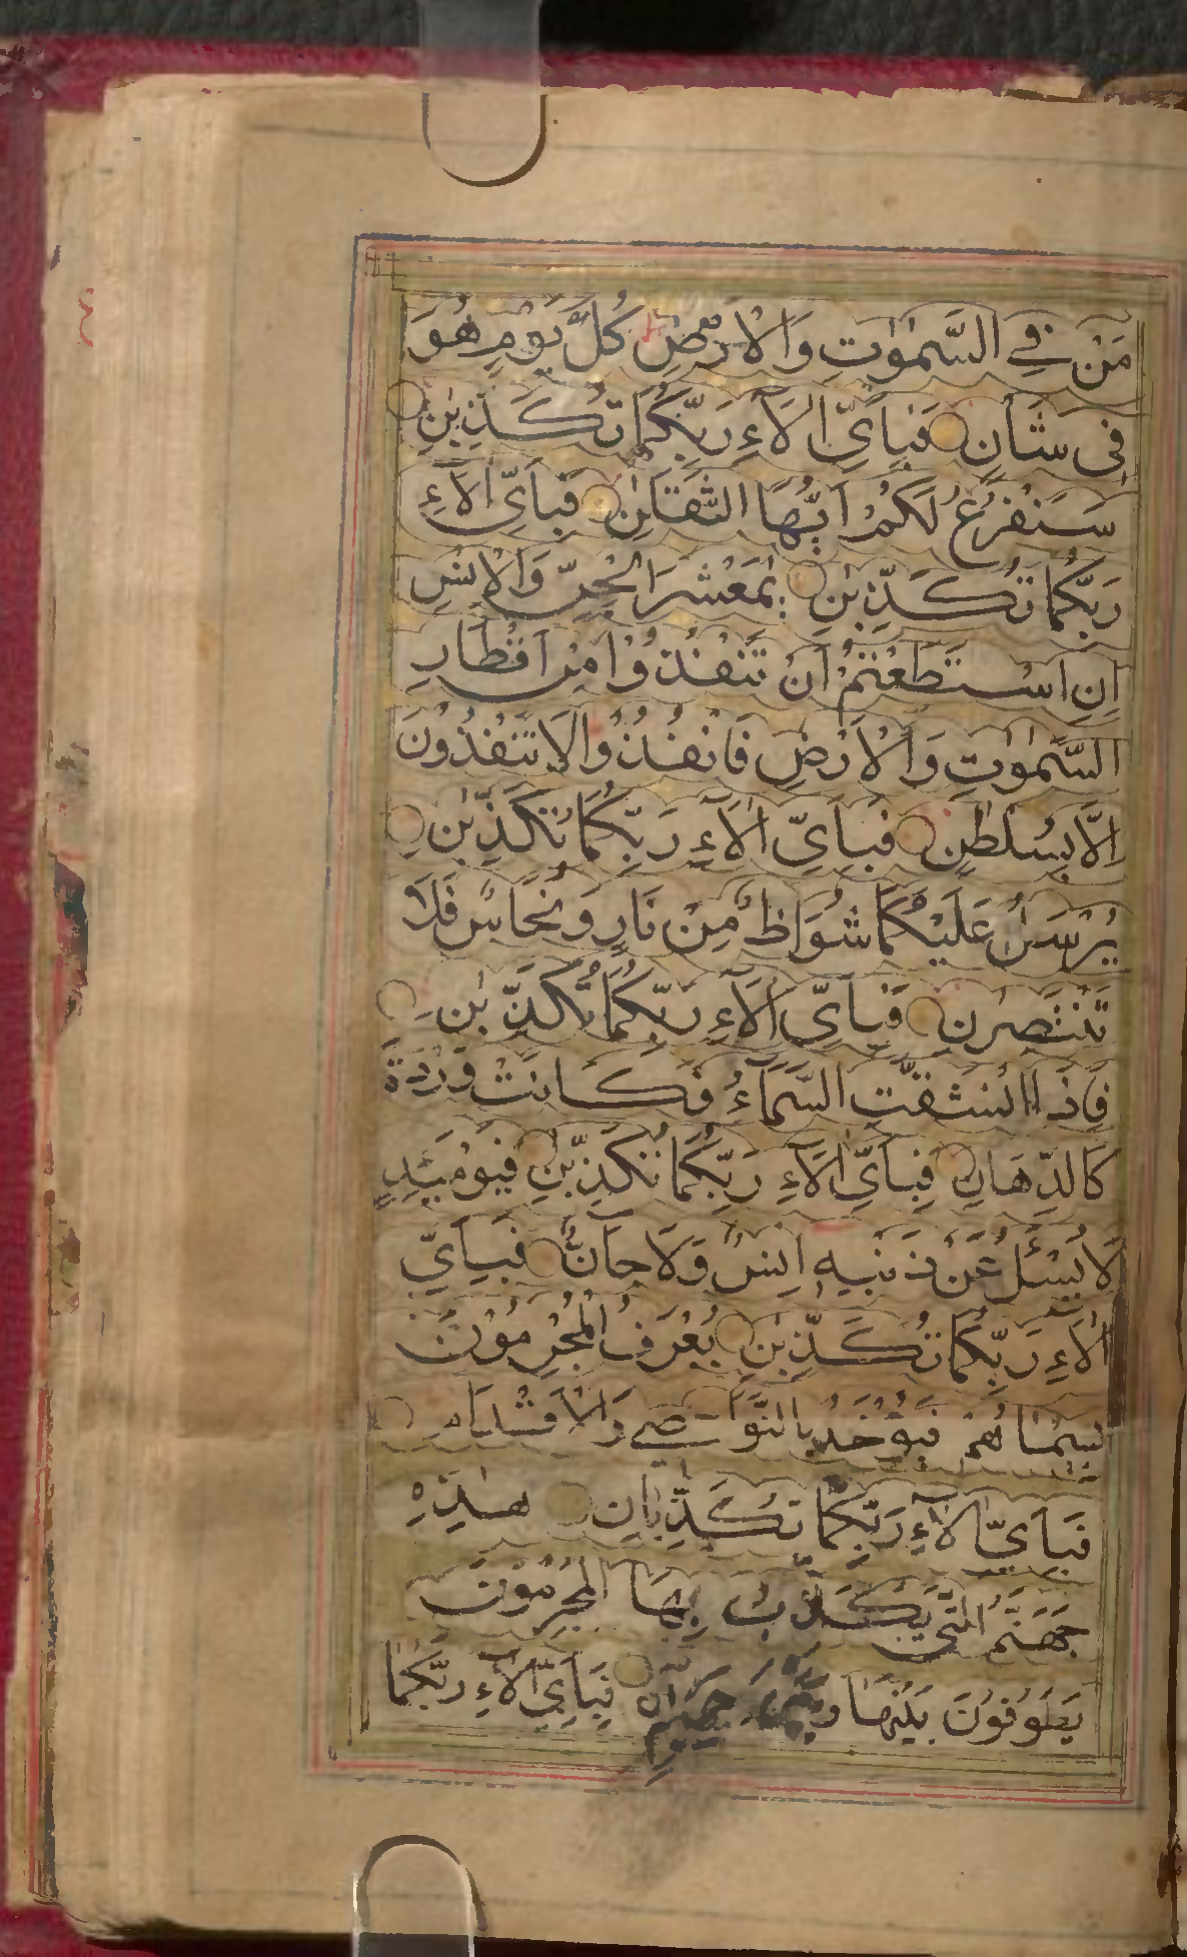 مَنْ فِي السَّمٰوٰتِ وَالْاَرْضِ كُلَّ يَوْمٍ هُوَ
فِى شَاْنٍ فَبِاَىِّ اٰلَآءِ رَبِّكُمَا تُكَذِّبٰنِ
سَنَفْرُغُ لَكُمْ اَيُّهَا الثَّقَلٰنِ فَبِاَىِّ اٰلَآءِ
رَبِّكُمَا تُكَذِّبٰنِ يٰمَعْشَرَ الْجِنِّ وَالْاِنْسِ
اِنِ اسْتَطَعْتُمْ اَنْ تَنْفُذُوْا مِنْ اَقْطَارِ
السَّمٰوٰتِ وَالْاَرْضِ فَانْفُذُوْا لَا تَنْفُذُوْنَ
اِلَّا بِسُلْطٰنٍ فَبِاَىِّ اٰلَآءِ رَبِّكُمَا تُكَذِّبٰنِ
يُرْسَلُ عَلَيْكُمَا شُوَاظٌ مِنْ نَارٍ وَنُحَاسٌ فَلَا
تَنْتَصِرٰنِ فَبِاَىِّ اٰلَآءِ رَبِّكُمَا تُكَذِّبٰنِ
فَاِذَا انْشَقَّتِ السَّمَآءُ فَكَانَتْ وَرْدَةً
كَالدِّهَانِ فَبِاَىِّ اٰلَآءِ رَبِّكُمَا تُكَذِّبٰنِ فَيَوْمَئِذٍ
لَا يُسْئَلُ عَنْ ذَنْبِهٖ اِنْسٌ وَلَا جَانٌّ فَبِاَىِّ
اٰلَآءِ رَبِّكُمَا تُكَذِّبٰنِ يُعْرَفُ الْمُجْرِمُوْنَ
بِسِيْمَاهُمْ فَيُؤْخَذُ بِالنَّوَاصِى وَالْاَقْدَامِ
فَبِاَىِّ اٰلَآءِ رَبِّكُمَا تُكَذِّبَانِ هٰذِهٖ
جَهَنَّمُ الَّتِى يُكَذِّبُ بِهَا الْمُجْرِمُوْنَ
يَطُوْفُوْنَ بَيْنَهَا وَبَيْنَ حَمِيْمٍ اٰنٍ فَبِاَىِّ اٰلَآءِ رَبِّكُمَا